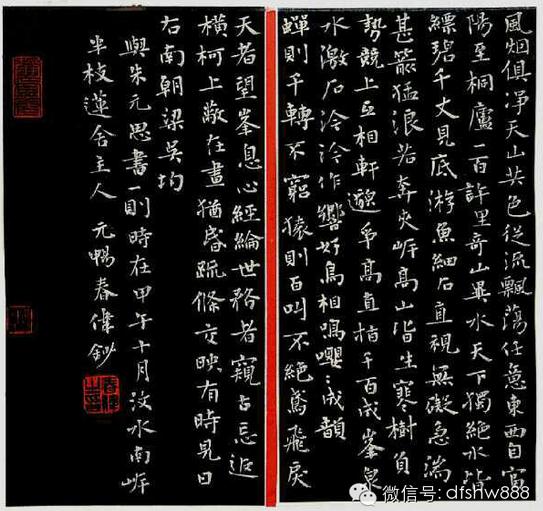 風烟俱淨天山共色從流飄蕩任意東西自富
陽至桐廬一百許里奇山異水天下獨絕水皆
縹碧千丈見底游魚細石直視無礙急湍
甚箭猛浪若奔夾岸高山皆生寒樹負
勢競上互相軒邈爭高直指千百成峯泉
水激石泠泠作響好鳥相鳴嚶〻成韻
蟬則千轉不窮猿則百叫不絕鳶飛戾
天者望峯息心經綸世務者窺谷忘返
橫柯上蔽在晝猶昏疏條交映有時見日
右南朝梁吳均
與朱元思書一則時在甲午十月汶水南岸
半枝蓮舍主人 元暢春偉鈔
微信号: dfshw888